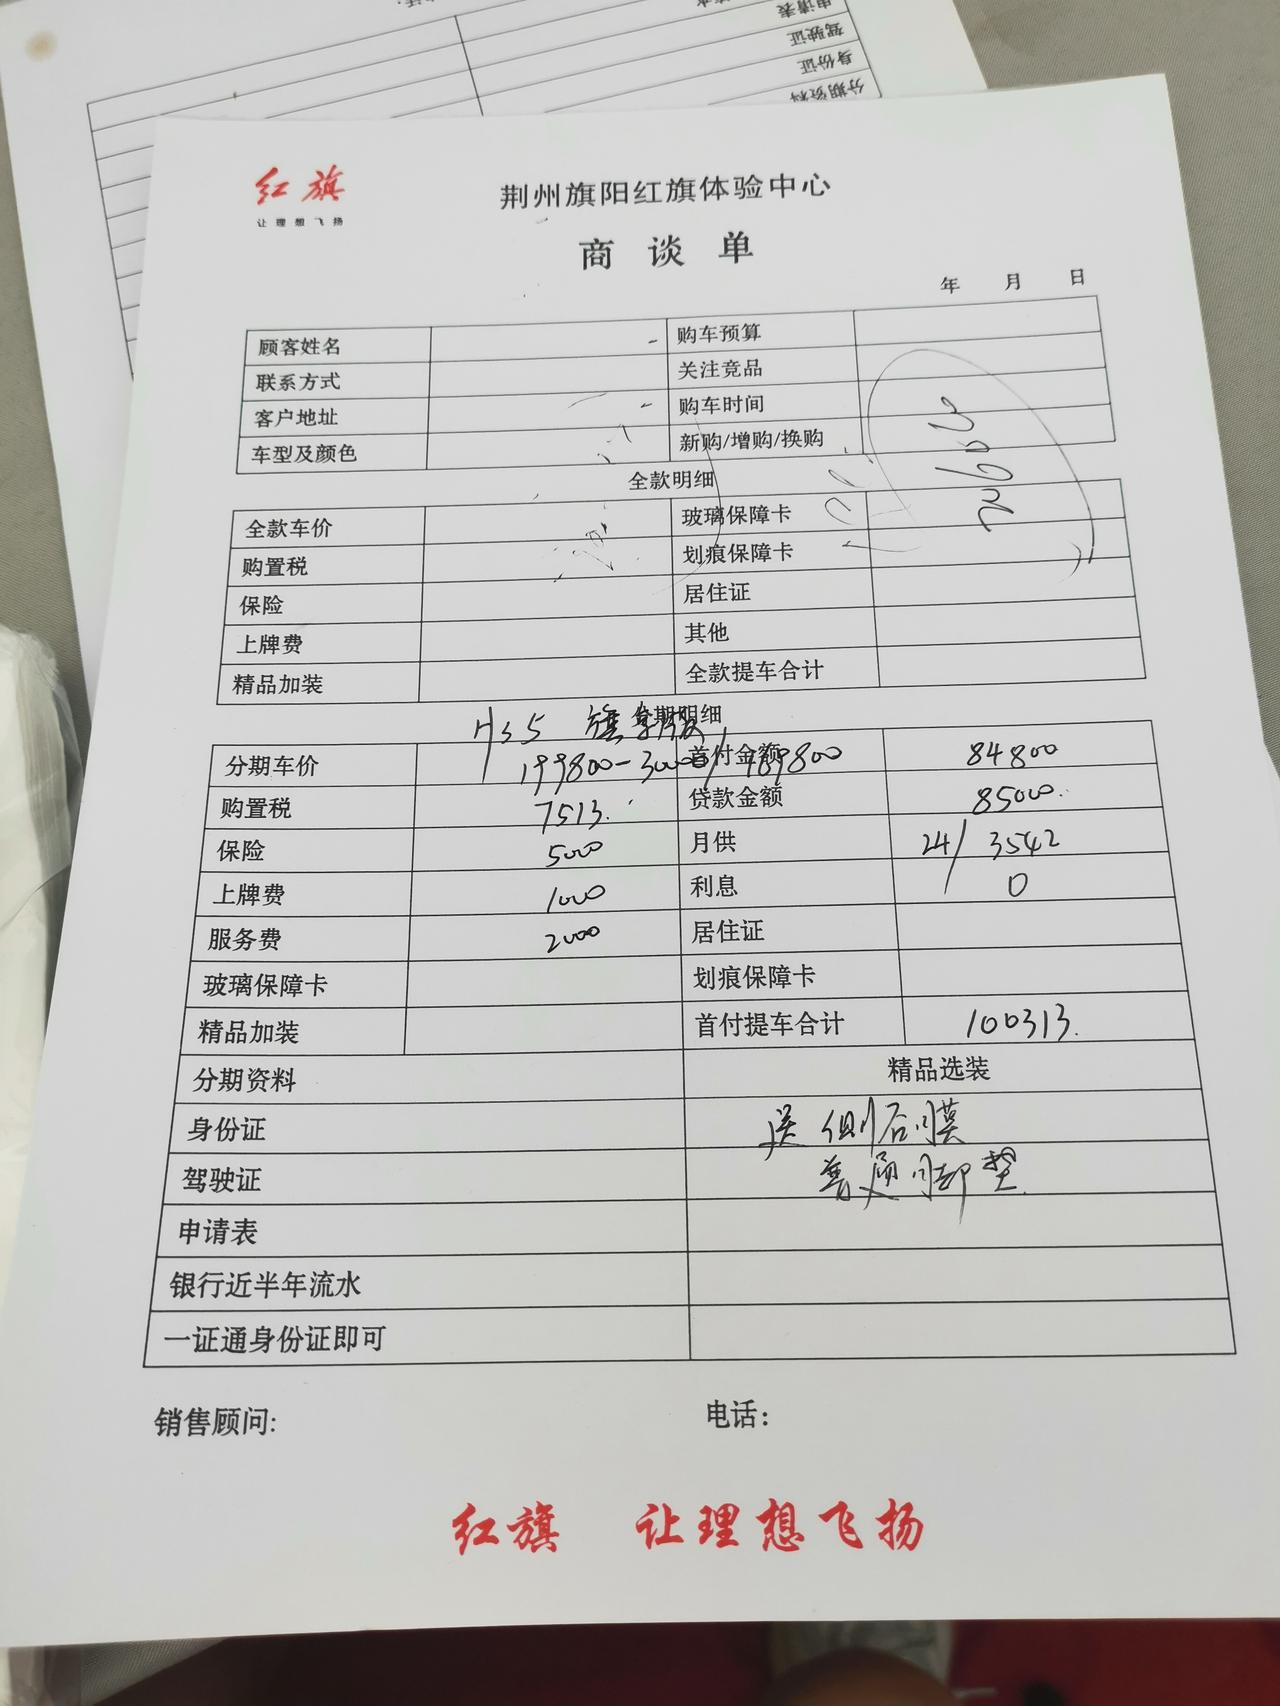 申请表
驾驶证
身份证
分期资料
红旗
让理想飞扬
荆州旗阳红旗体验中心
商谈单
年 月 日
顾客姓名 购车预算
联系方式 关注竞品
客户地址 购车时间
车型及颜色 新购/增购/换购
全款明细
全款车价 玻璃保障卡
购置税 划痕保障卡
保险 居住证
上牌费 其他
精品加装 全款提车合计
分期明细
HS5 旗享版
分期车价 199800-30000/169800 首付金额 84800
购置税 7513. 贷款金额 85000.
保险 5000 月供 24/3542
上牌费 1000 利息 0
服务费 2000 居住证
玻璃保障卡 划痕保障卡
精品加装 首付提车合计 100313.
分期资料 精品选装
身份证 送 侧后膜
驾驶证 脚垫
申请表
银行近半年流水
一证通身份证即可
销售顾问: 电话:
红旗 让理想飞扬